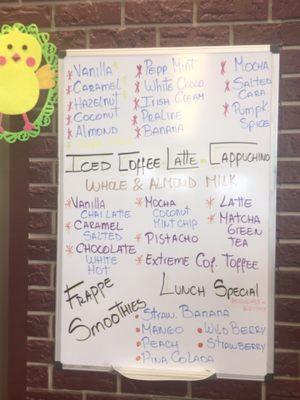 Vanilla
Caramel
Hazelnut
Coconut
Almond
Pepp. Mint
White Choco
Irish Cream
Praline
Banana
Mocha
Salted
Cara
Pumpk
Spice
Iced Coffee Latte - Cappuchino
Whole & Almond Milk
Vanilla
Chai Latte
Caramel
Salted
Chocolate
White
Hot
Mocha
Coconut
Mint Chip
Pistacho
Extreme Cof. Toffee
Latte
Matcha
Green
Tea
Frappe
Smoothies
Lunch Special
Straw. Banana
Mango
Peach
Pina Colada
Wild Berry
Strawberry